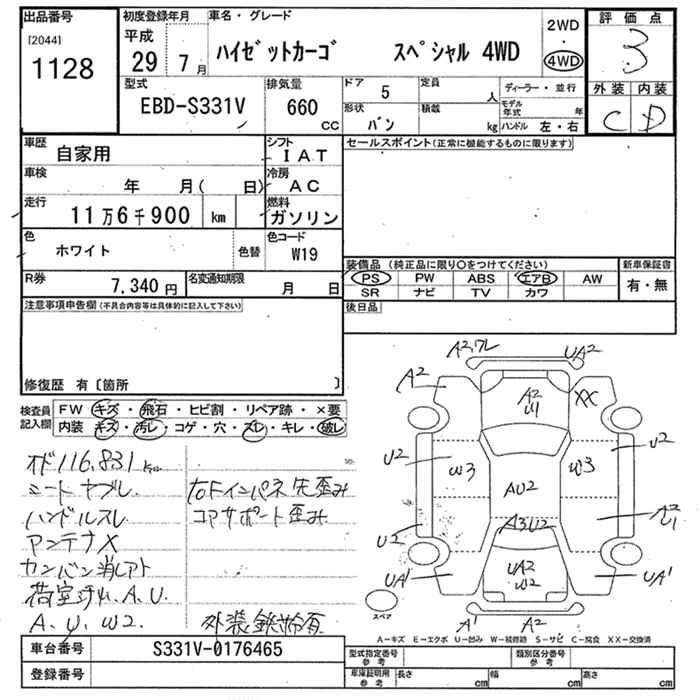 出品番号
[2044]
1128
初度登録年月
平成
29 7月
車名・グレード
ハイゼットカーゴ スペシャル 4WD
2WD
・
4WD
評価点
3
外装 内装
C D
型式
EBD-S331V
排気量
660
CC
ドア 5
定員 人
ディーラー・並行
形状 バン
積載 kg
モデル年式 年
ハンドル 左・右
車歴
自家用
シフト
IAT
セールスポイント(正常に機能するものに限ります)
車検
年 月( 日)
冷房
AC
走行
11万6千900 km
燃料
ガソリン
色
ホワイト
色替
色コード
W19
装備品 (純正品に限り○をつけてください)
新車保証書
PS PW ABS エアB AW
SR ナビ TV カワ
有・無
R券
7,340 円
名変通知期限
月 日
後日品
注意事項申告欄(不具合内容等は具体的に記入して下さい)
修復歴 有〔箇所 〕
検査員記入欄
FW キズ・飛石・ヒビ割・リペア跡・×要
内装 キズ・汚レ・コゲ・穴・スレ・キレ・破レ
オド116,831km
シートヤブレ
ハンドルスレ
アンテナX
カンバン消しアト
荷室キズ、A.U.
A.U.W2.
右Fインパネ先歪み
コアサポート歪み
外装鉄粉有
A2ワレ UA2
A2 XX
A2
W1
U2 W3 W3 U2
AU2
A2
U1
A3U2
U2
UA1 UA2
W2 UA1
スペア
A1 A2
A-キズ E-エクボ U-凹み W-補修跡 S-サビ C-腐食 XX-交換済
車台番号
S331V-0176465
登録番号
型式指定番号
参考
類別区分番号
参考
車庫証明用
参考
長さ cm 幅 cm 高さ cm